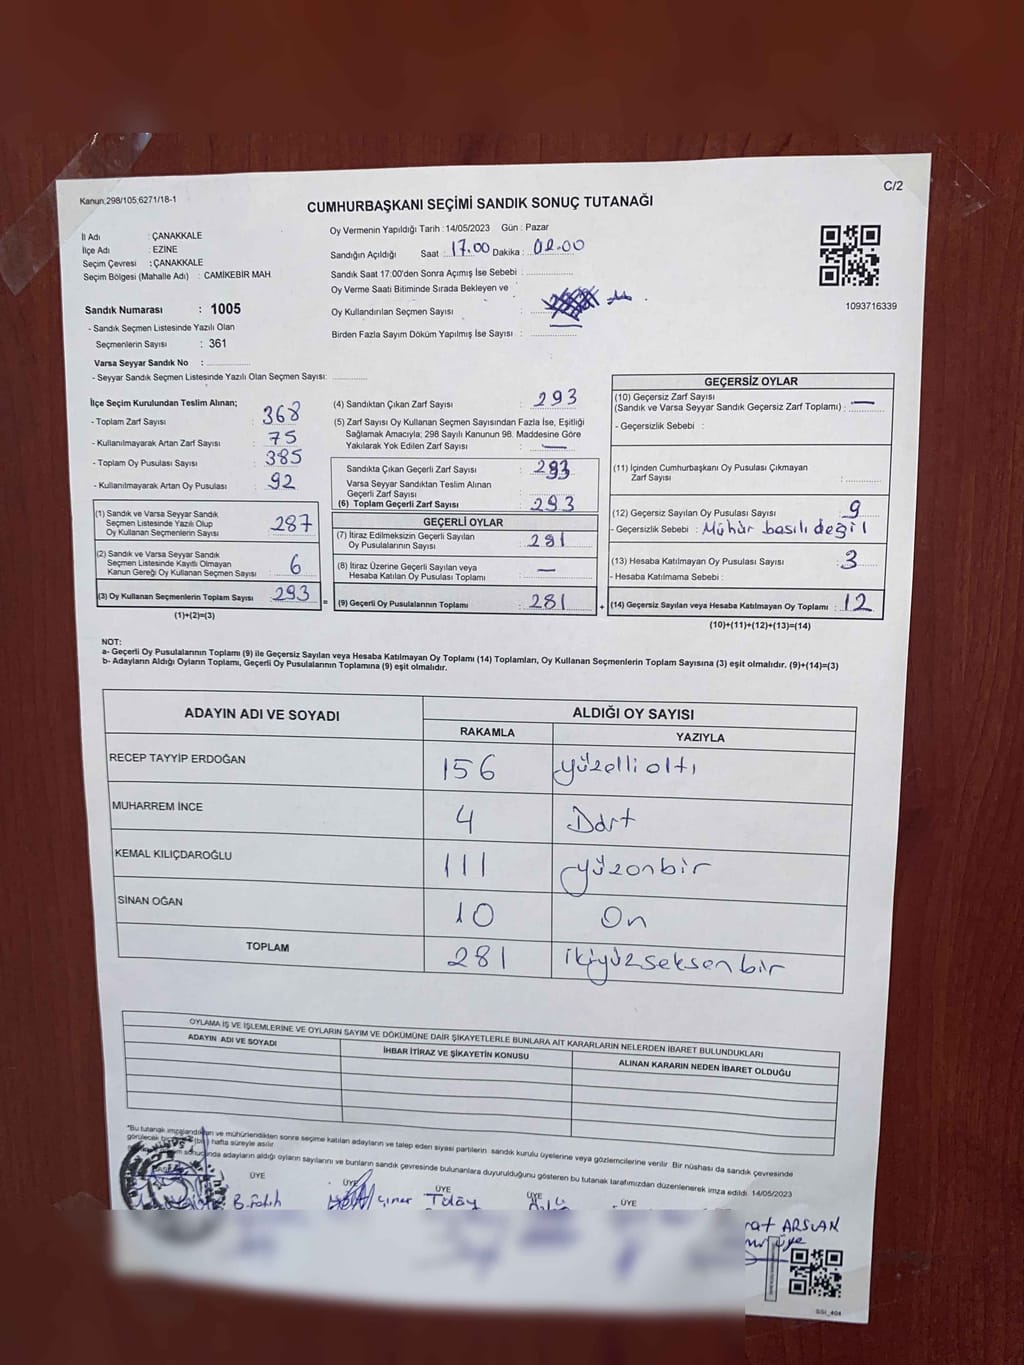 Kanun;298/105;6271/18-1
C/2
CUMHURBAŞKANI SEÇİMİ SANDIK SONUÇ TUTANAĞI
İl Adı : ÇANAKKALE
İlçe Adı : EZİNE
Seçim Çevresi : ÇANAKKALE
Seçim Bölgesi (Mahalle Adı) : CAMİKEBİR MAH.
Sandık Numarası : 1005
- Sandık Seçmen Listesinde Yazılı Olan
Seçmenlerin Sayısı : 361
Varsa Seyyar Sandık No :
- Seyyar Sandık Seçmen Listesinde Yazılı Olan Seçmen Sayısı:
Oy Vermenin Yapıldığı Tarih : 14/05/2023 Gün : Pazar
Sandığın Açıldığı Saat : 17.00 Dakika : 00.00
Sandık Saat 17:00'den Sonra Açımış İse Sebebi :
Oy Verme Saati Bitiminde Sırada Bekleyen ve
Oy Kullandırılan Seçmen Sayısı :
Birden Fazla Sayım Döküm Yapılmış İse Sayısı :
1093716339
İlçe Seçim Kurulundan Teslim Alınan;
- Toplam Zarf Sayısı : 368
- Kullanılmayarak Artan Zarf Sayısı : 75
- Toplam Oy Pusulası Sayısı : 385
- Kullanılmayarak Artan Oy Pusulası : 92
(1) Sandık ve Varsa Seyyar Sandık
Seçmen Listesinde Yazılı Olup
Oy Kullanan Seçmenlerin Sayısı : 287
(2) Sandık ve Varsa Seyyar Sandık
Seçmen Listesinde Kayıtlı Olmayan
Kanun Gereği Oy Kullanan Seçmen Sayısı : 6
(3) Oy Kullanan Seçmenlerin Toplam Sayısı : 293 =
(1)+(2)=(3)
(4) Sandıktan Çıkan Zarf Sayısı : 293
(5) Zarf Sayısı Oy Kullanan Seçmen Sayısından Fazla İse, Eşitliği
Sağlamak Amacıyla; 298 Sayılı Kanunun 98. Maddesine Göre
Yakılarak Yok Edilen Zarf Sayısı : —
Sandıkta Çıkan Geçerli Zarf Sayısı : 293
Varsa Seyyar Sandıktan Teslim Alınan
Geçerli Zarf Sayısı :
(6) Toplam Geçerli Zarf Sayısı : 293
GEÇERLİ OYLAR
(7) İtiraz Edilmeksizin Geçerli Sayılan
Oy Pusulalarının Sayısı : 281
(8) İtiraz Üzerine Geçerli Sayılan veya
Hesaba Katılan Oy Pusulası Toplamı : —
(9) Geçerli Oy Pusulalarının Toplamı : 281 +
GEÇERSİZ OYLAR
(10) Geçersiz Zarf Sayısı
(Sandık ve Varsa Seyyar Sandık Geçersiz Zarf Toplamı) : —
- Geçersizlik Sebebi :
(11) İçinden Cumhurbaşkanı Oy Pusulası Çıkmayan
Zarf Sayısı :
(12) Geçersiz Sayılan Oy Pusulası Sayısı : 9
- Geçersizlik Sebebi : Mühür basılı değil
(13) Hesaba Katılmayan Oy Pusulası Sayısı : 3
- Hesaba Katılmama Sebebi :
(14) Geçersiz Sayılan veya Hesaba Katılmayan Oy Toplamı : 12
(10)+(11)+(12)+(13)=(14)
NOT:
a- Geçerli Oy Pusulalarının Toplamı (9) ile Geçersiz Sayılan veya Hesaba Katılmayan Oy Toplamı (14) Toplamları, Oy Kullanan Seçmenlerin Toplam Sayısına (3) eşit olmalıdır. (9)+(14)=(3)
b- Adayların Aldığı Oyların Toplamı, Geçerli Oy Pusulalarının Toplamına (9) eşit olmalıdır.
ADAYIN ADI VE SOYADI
ALDIĞI OY SAYISI
RAKAMLA YAZIYLA
RECEP TAYYİP ERDOĞAN 156 yüzellialtı
MUHARREM İNCE 4 Dört
KEMAL KILIÇDAROĞLU 111 yüzonbir
SİNAN OĞAN 10 On
TOPLAM 281 ikiyüzseksenbir
OYLAMA İŞ VE İŞLEMLERİNE VE OYLARIN SAYIM VE DÖKÜMÜNE DAİR ŞİKAYETLERLE BUNLARA AİT KARARLARIN NELERDEN İBARET BULUNDUKLARI
ADAYIN ADI VE SOYADI İHBAR İTİRAZ VE ŞİKAYETİN KONUSU ALINAN KARARIN NEDEN İBARET OLDUĞU
*Bu tutanak imzalandıktan ve mühürlendikten sonra seçime katılan adayların ve talep eden siyasi partilerin sandık kurulu üyelerine veya gözlemcilerine verilir. Bir nüshası da sandık çevresinde
görülecek bir (bir) hafta süreyle asılır.
sonucunda adayların aldığı oyların sayılarını ve bunların sandık çevresinde bulunanlara duyurulduğunu gösteren bu tutanak tarafımızdan düzenlenerek imza edildi. 14/05/2023
ÜYE ÜYE ÜYE ÜYE ÜYE
B. Fatih Çınar Tülay
ARSLAN
üye
SSİ_404